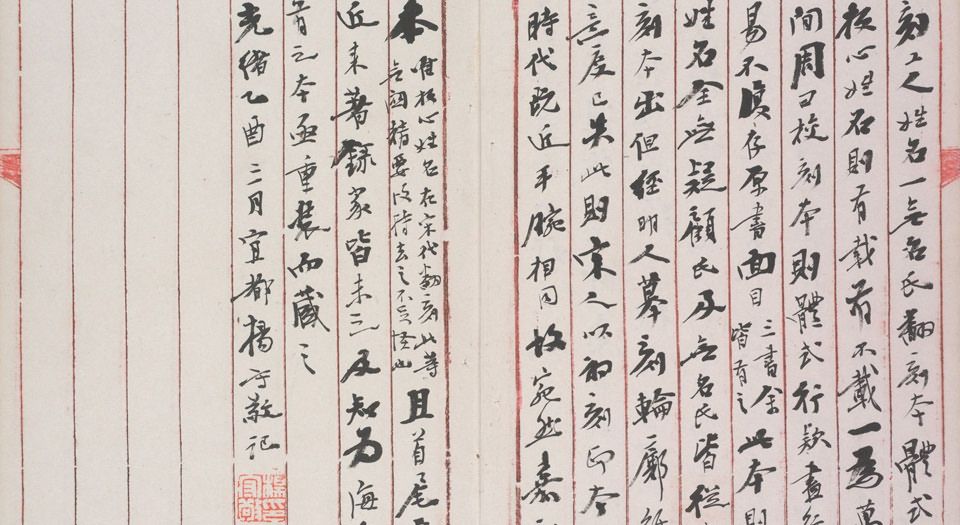 刻工人姓名一無名氏翻刻本體式
板心姓名則有載有不載一為萬
間周曰校刻本則體式行款盡行
易不復存原書面目三書余皆有之此本則
姓名全無疑顧氏及無名氏皆從
刻本出但經明人摹刻輪廓
意度已失此則宋人以初刻印本
時代既近手腕相同故宛然嘉
本唯板心姓名在宋代翻刻此等無關精要伎倆去之不足怪也且首尾
近來著錄家皆未之及知為海
有之本亟重裝而藏之
光緒乙酉三月宜都楊守敬記